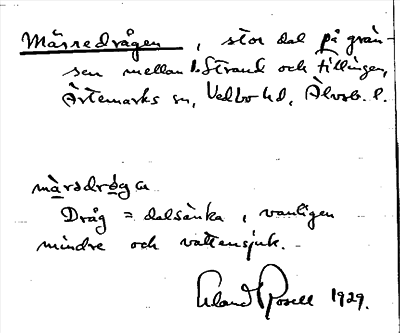 Märredrågen, stor dal på grän-
sen mellan l. Strand och Tillingen,
Ärtemarks sn, Vedbo hd, Älvsb. l.
màrədrøga
Dråg = dalsänka, vanligen
mindre och vattensjuk. -
Erland Rosell 1929.